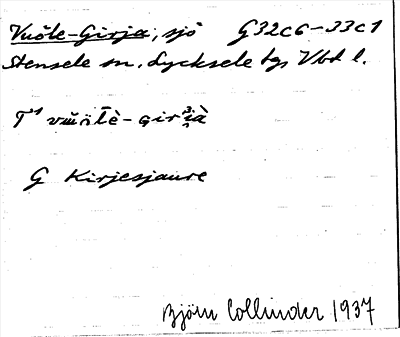 Vuôle-Girja, sjö G32c6-33c1
Stensele sn. Lycksele lgs Vbt l.
T¹
G Kirjesjaure
Björn Collinder 1937